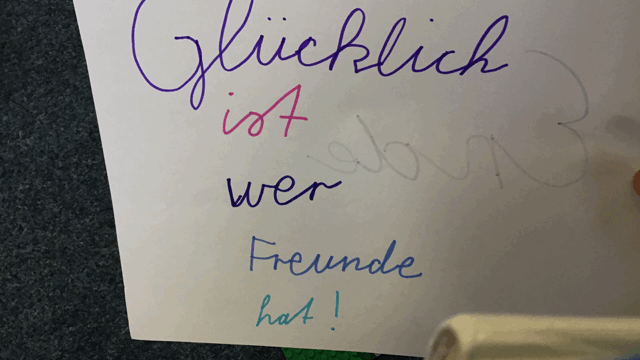 Glücklich
ist
wer
Freunde
hat!
Ende